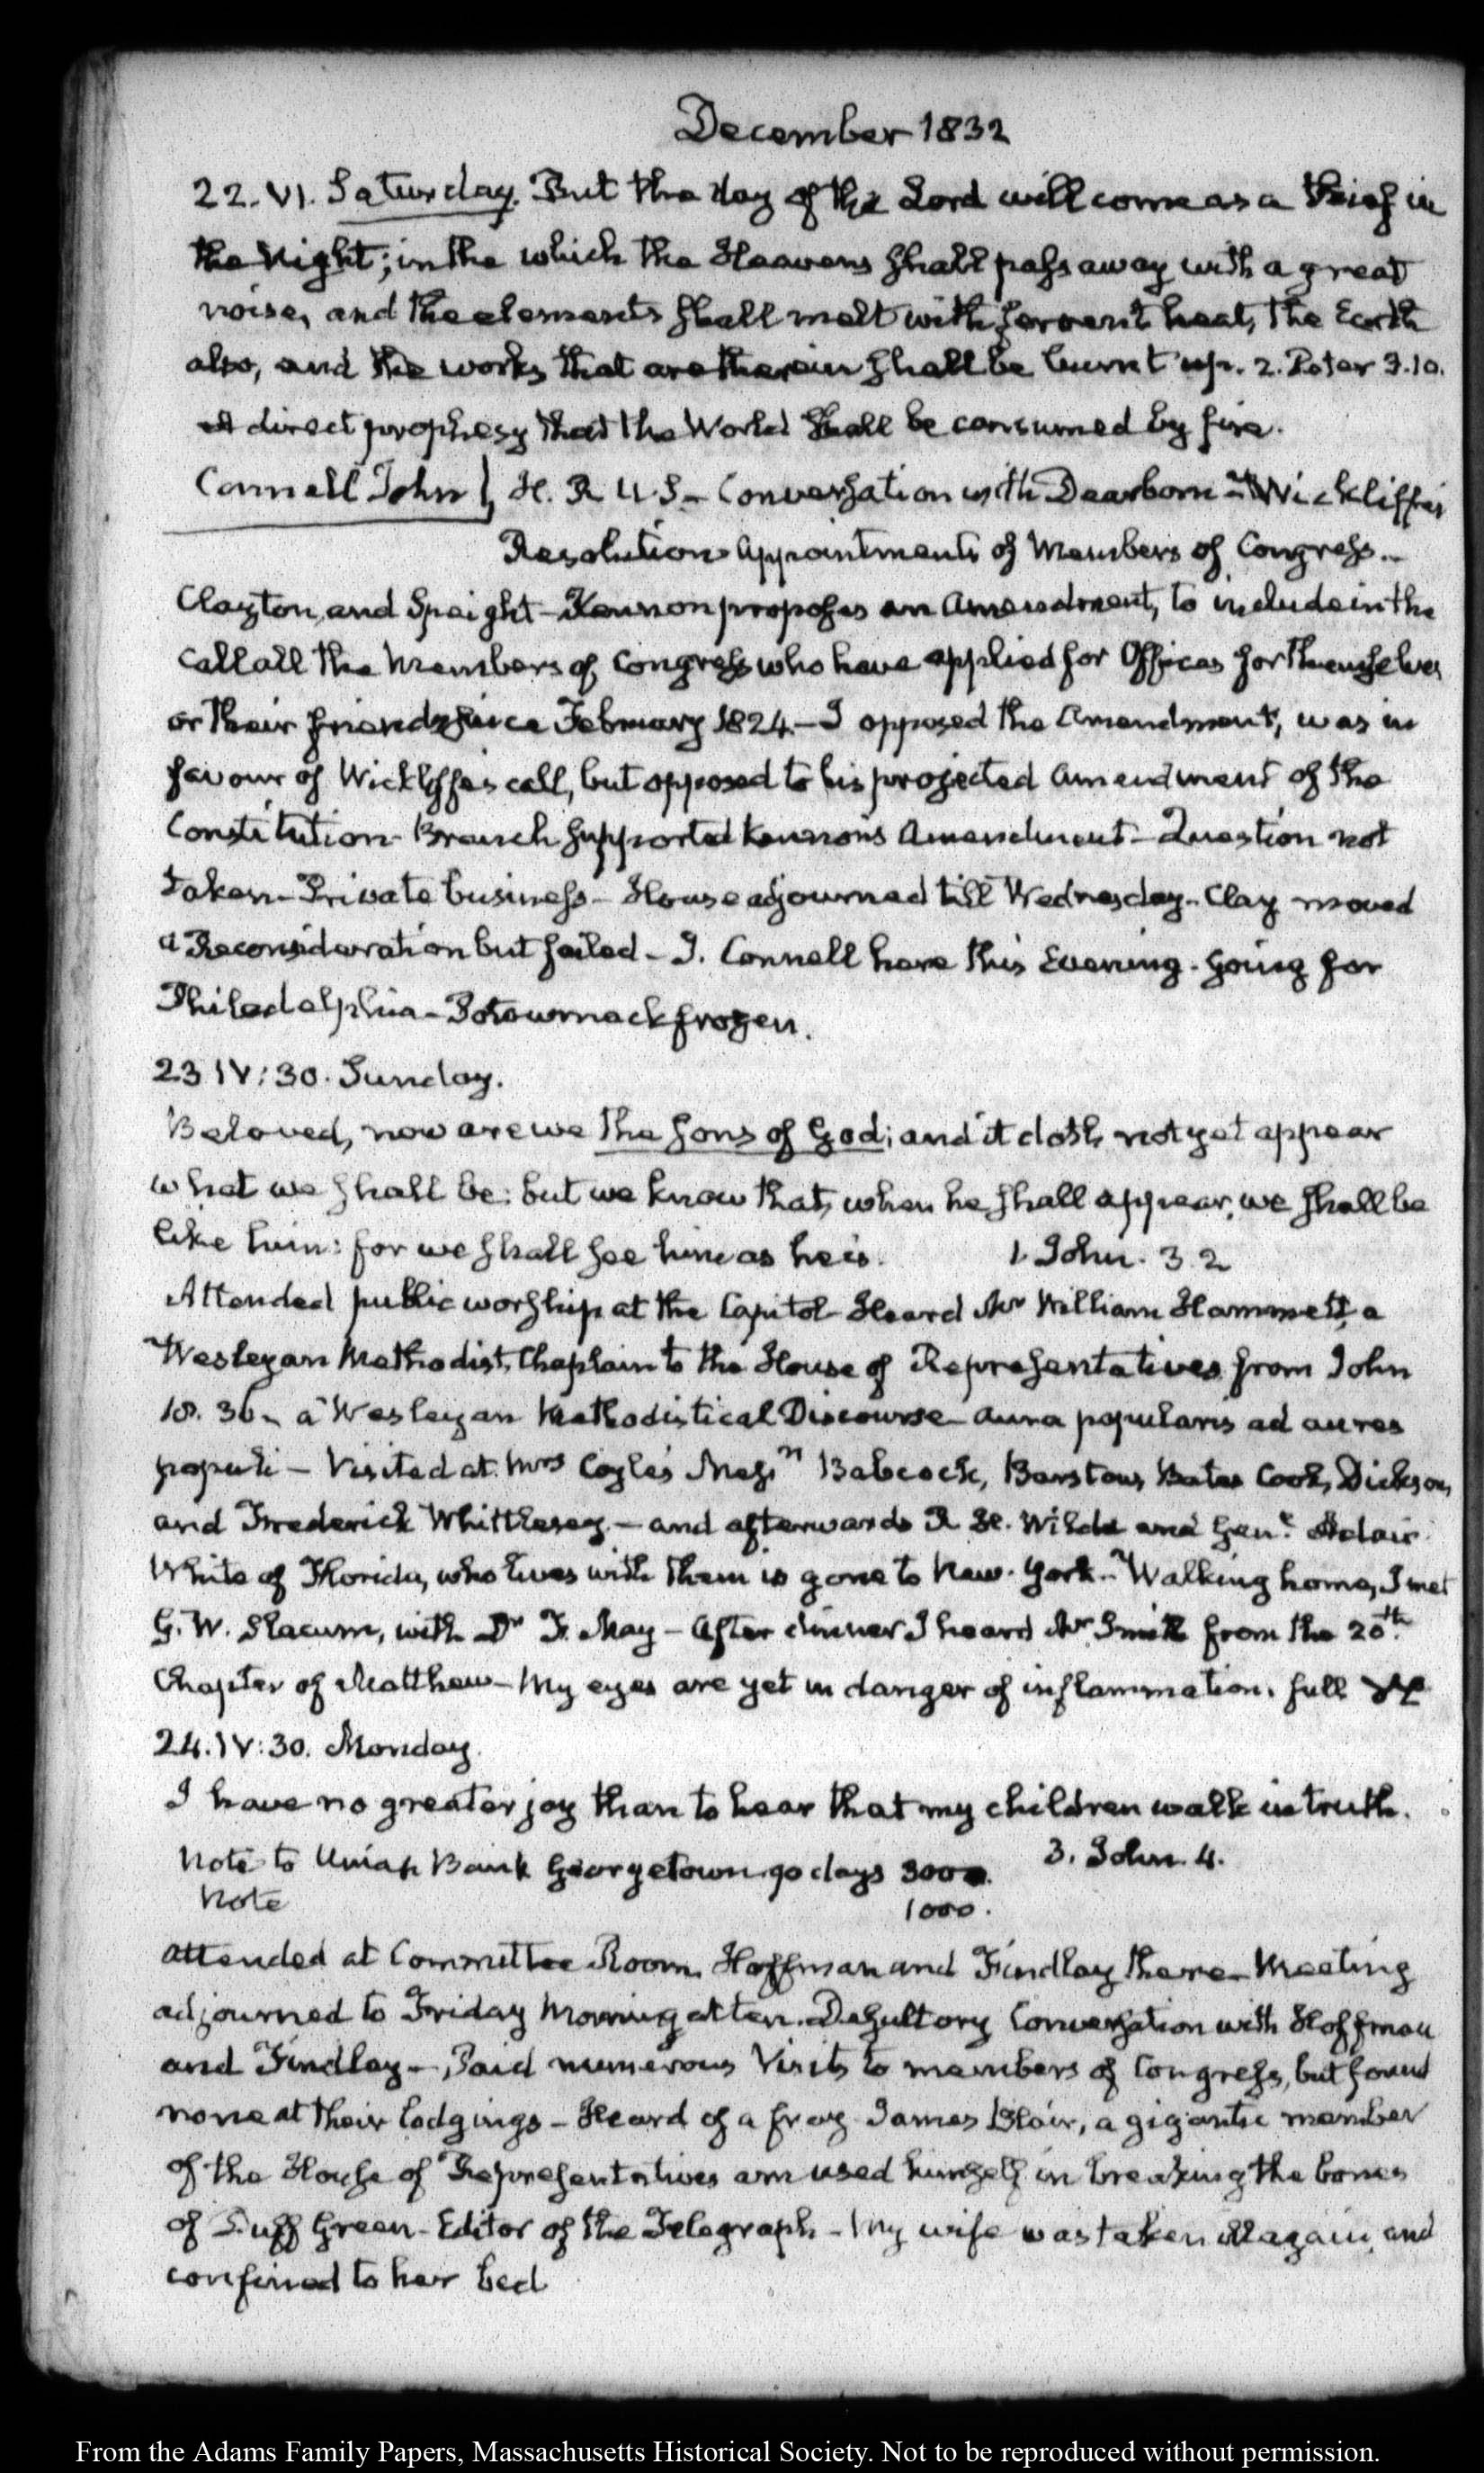 December 1832
22. VI. Saturday. But the day of the Lord will come as a thief in
the Night; in the which the Heavens shall pass away with a great
noise, and the elements shall melt with fervent heat, the Earth
also, and the works that are therein shall be burnt up. 2. Peter 3.10.
A direct prophesy that the World shall be consumed by fire.
Connell John } H. R. U.S — Conversation with Dearborn — Wickliffe's
Resolution Appointments of Members of Congress —
Clayton, and Speight — Kennon proposes an Amendment, to include in the
call all the Members of Congress who have applied for Offices for themselves
or their friends since February 1824 — I opposed the Amendment, was in
favour of Wickliffe's call, but opposed to his projected Amendment of the
Constitution — Branch supported Kennon's Amendment — Question not
taken — Private business — House adjourned till Wednesday — Clay moved
a Reconsideration but failed — J. Connell here this Evening. Going for
Philadelphia — Potowmack frozen.
23 IV:30. Sunday.
Beloved, now are we the sons of God; and it doth not yet appear
what we shall be: but we know that, when he shall appear, we shall be
like him: for we shall see him as he is. 1. John. 3. 2
Attended public worship at the Capitol — Heard Mr William Hammett, a
Wesleyan Methodist, Chaplain to the House of Representatives from John
18. 36 — a Wesleyan Methodistical Discourse — aura popularis ad aures
populi — Visited at Mrs Coyle's Messrs Babcock, Barstow, Bates Cook, Dickson,
and Frederick Whittlesey — and afterwards R. H. Wilde and Genl. Adair.
White of Florida, who lives with them is gone to New-York — Walking home, I met
G. W. Slacum, with Dr F. May — After dinner I heard Mr Smith from the 20th.
Chapter of Matthew — My eyes are yet in danger of inflammation. full
24. IV:30. Monday.
I have no greater joy than to hear that my children walk in truth.
3. John. 4.
Note to Union Bank Georgetown 90 days 3000.
Note 1000.
Attended at Committee Room. Hoffman and Findlay there — Meeting
adjourned to Friday Morning at ten. Desultory Conversation with Hoffman
and Findlay — Paid numerous Visits to members of Congress, but found
none at their lodgings — Heard of a fray James Blair, a gigantic member
of the House of Representatives amused himself in breaking the bones
of Duff Green — Editor of the Telegraph — My wife was taken ill again, and
confined to her bed
From the Adams Family Papers, Massachusetts Historical Society. Not to be reproduced without permission.